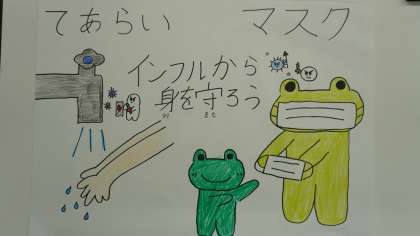 てあらい
マスク
インフルから
身を守ろう
み まも